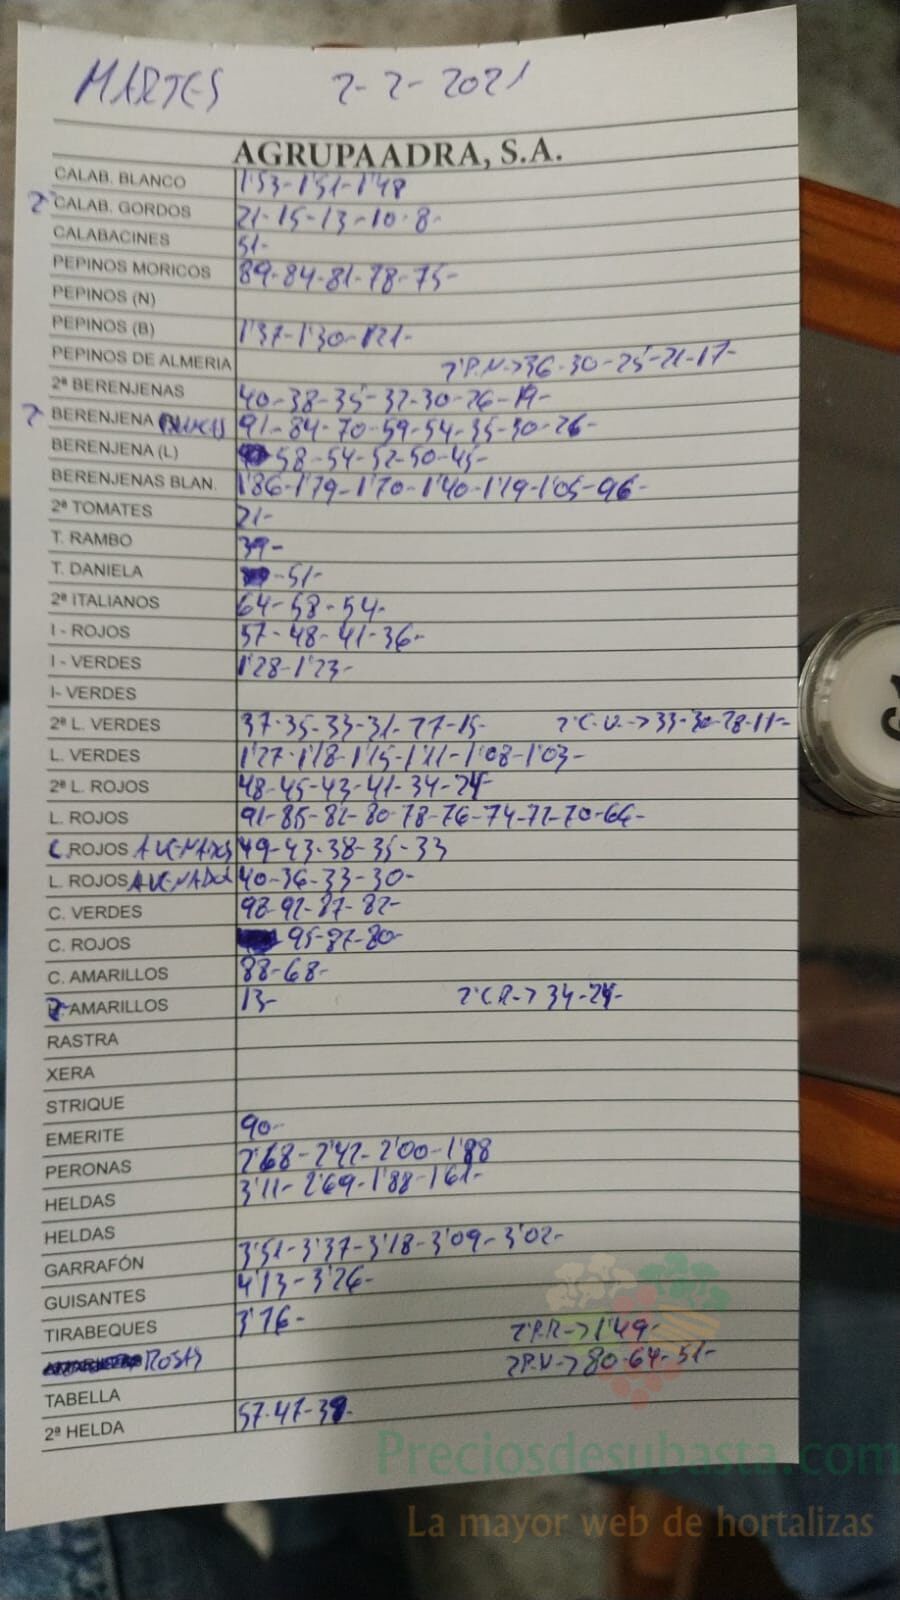 MARTES 2-2-2021
AGRUPAADRA, S.A.
CALAB. BLANCO 1'53-1'51-1'48
2ª CALAB. GORDOS 21-15-13-10-8-
CALABACINES 51-
PEPINOS MORICOS 89-84-81-78-75-
PEPINOS (N)
PEPINOS (B) 1'37-1'30-1'21-
PEPINOS DE ALMERIA 2ªP.N->36-30-25-21-17-
2ª BERENJENAS 40-38-35-32-30-26-19-
2ª BERENJENA 91-84-70-59-54-35-30-26-
BERENJENA (L) 58-54-52-50-45-
BERENJENAS BLAN. 1'86-1'79-1'70-1'40-1'19-1'05-96-
2ª TOMATES 21-
T. RAMBO 39-
T. DANIELA -51-
2ª ITALIANOS 64-58-54-
I - ROJOS 57-48-41-36-
I - VERDES 1'28-1'23-
I- VERDES
2ª L. VERDES 37-35-33-31-27-15- 2ªC.V.->33-30-28-11-
L. VERDES 1'27-1'18-1'15-1'11-1'08-1'03-
2ª L. ROJOS 48-45-43-41-34-24-
L. ROJOS 91-85-82-80-78-76-74-72-70-66-
C. ROJOS AVENADOS 49-43-38-35-33
L. ROJOS AVENADOS 40-36-33-30-
C. VERDES 98-92-87-82-
C. ROJOS 95-87-80-
C. AMARILLOS 88-68-
2ª AMARILLOS 13- 2ªC.R->34-24-
RASTRA
XERA
STRIQUE
EMERITE 90-
PERONAS 2'68-2'42-2'00-1'88
HELDAS 3'11-2'69-1'88-1'61-
HELDAS
GARRAFÓN 3'51-3'37-3'18-3'09-3'02-
GUISANTES 4'13-3'26-
TIRABEQUES 3'76- 2ªP.R->1'49-
ROSAS 2ªP.V->80-64-51-
TABELLA
2ª HELDA 57-47-39-
Preciosdesubasta.com
La mayor web de hortalizas